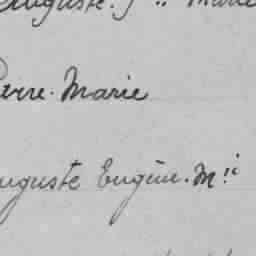 Auguste. J.ⁿ Marie
Pierre. Marie
Auguste Eugèn. M.ie